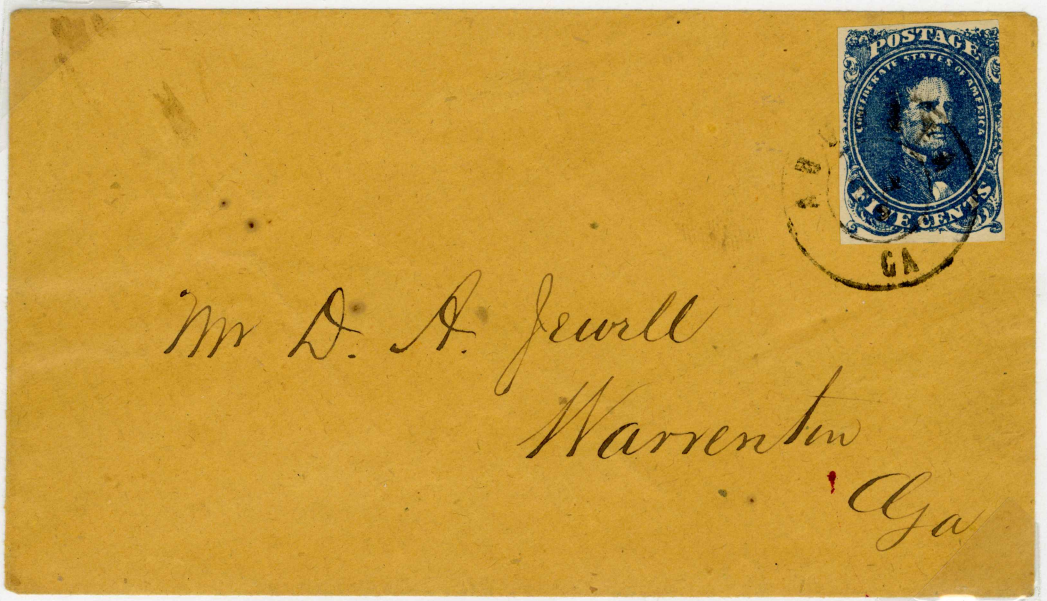 POSTAGE
CONFEDERATE STATES OF AMERICA
FIVE CENTS
GA
Mr D. A. Jewell
Warrenton
Ga